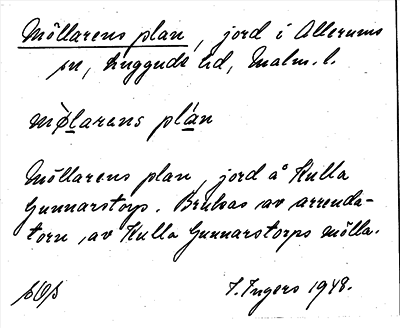 Möllarens plan, jord i Allerums
sn, Luggude hd, Malm. l.
mø̀larens plán
Möllarens plan, jord å Kulla
Gunnarstorp. Brukas av arrenda-
torn, av Kulla Gunnarstorps mölla.
I. Ingers 1948.